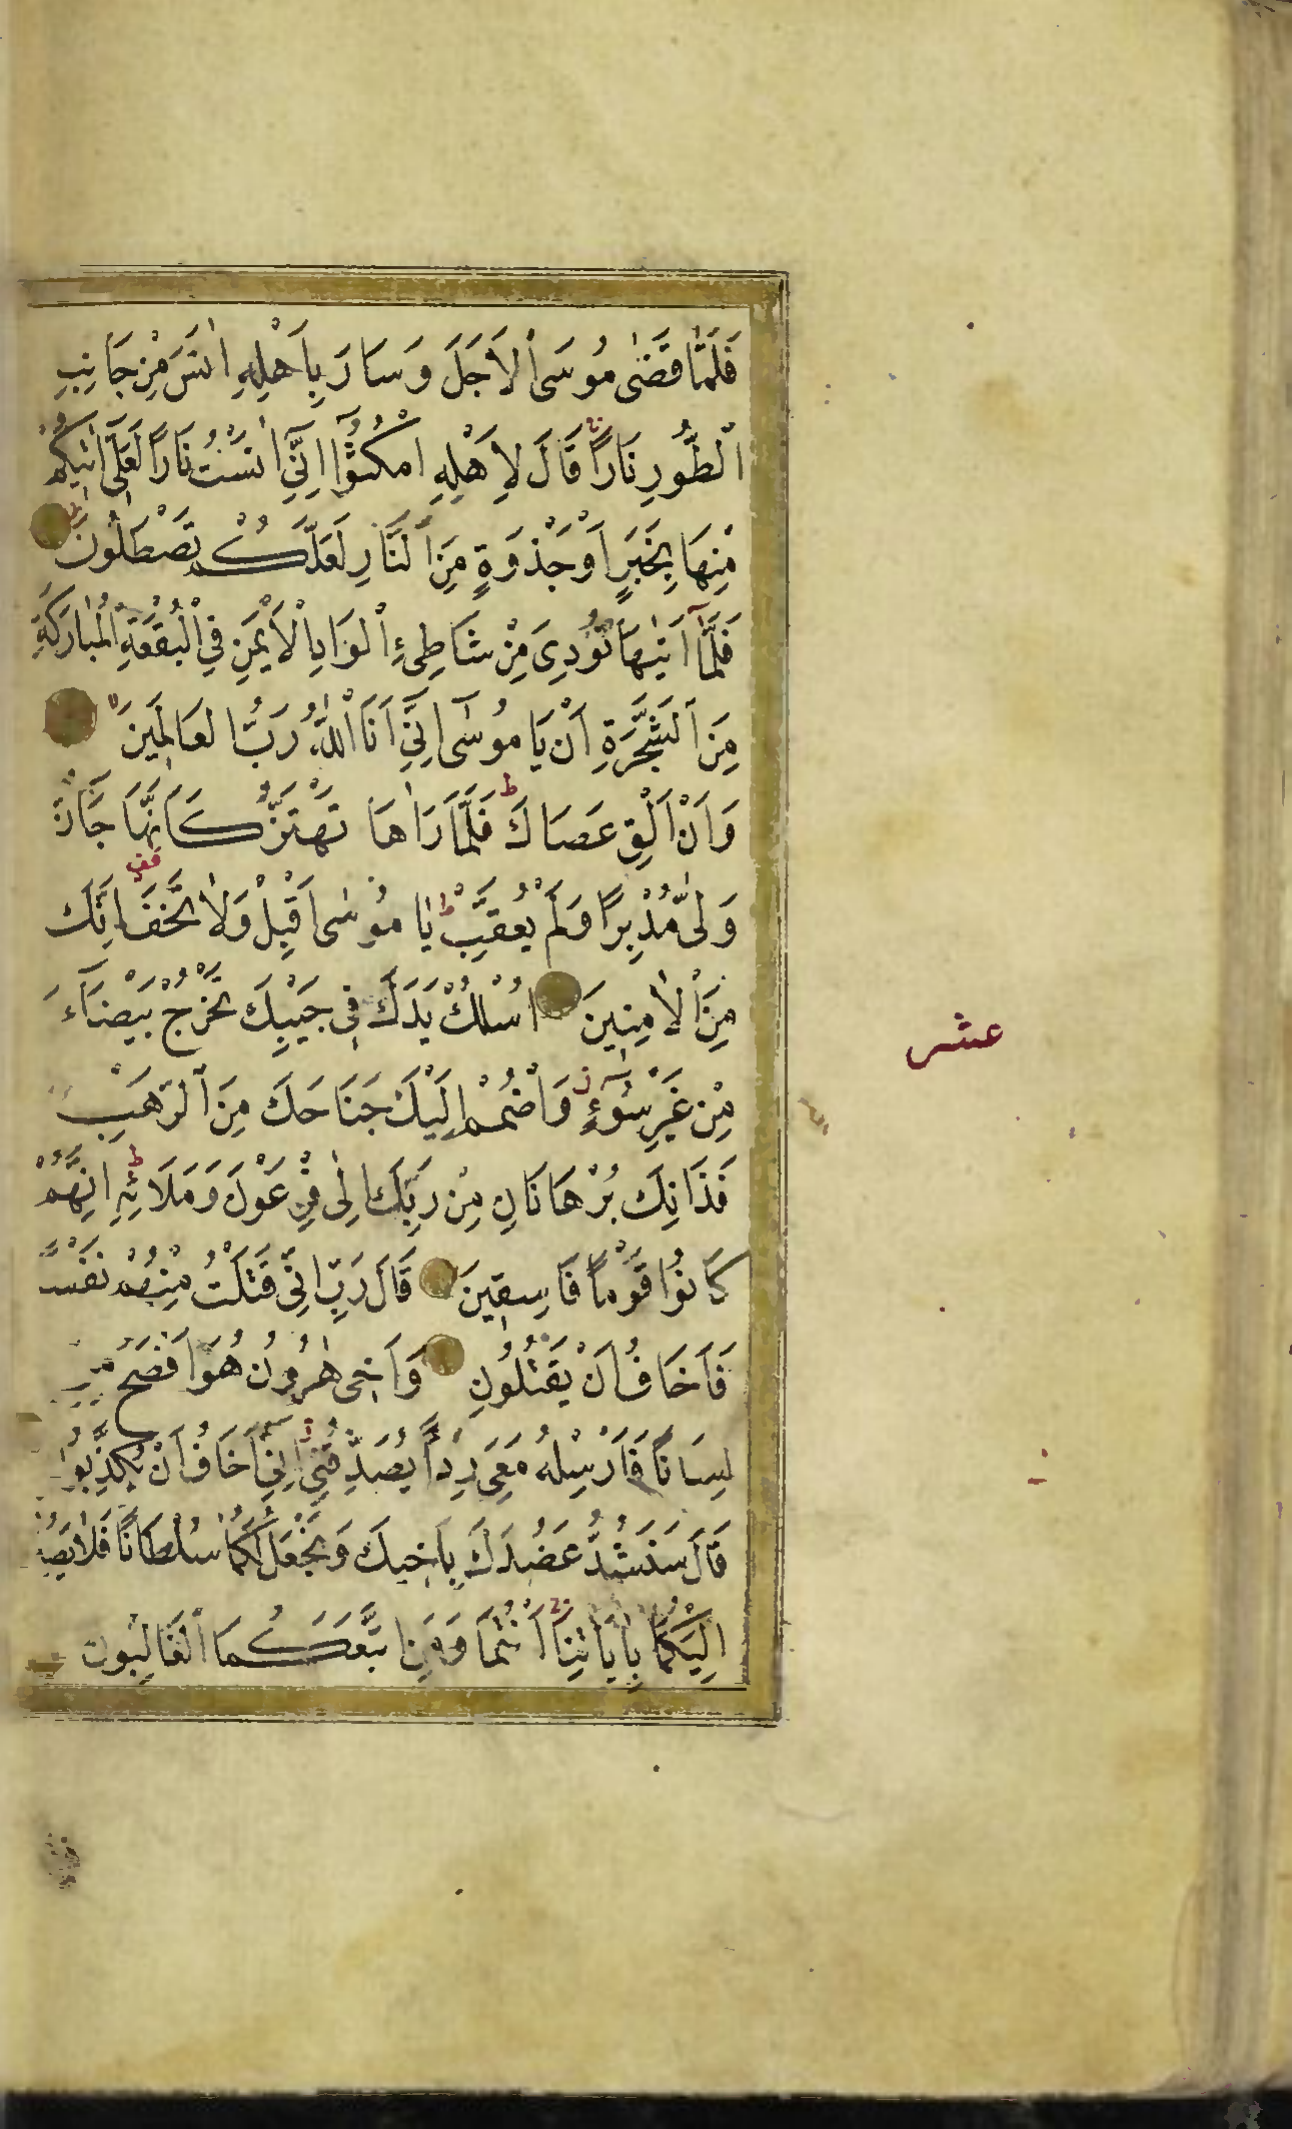 فَلَمَّا قَضٰى مُوسَى الْاَجَلَ وَسَارَ بِاَهْلِهٖ اٰنَسَ مِنْ جَانِبِ
الطُّورِ نَارًا قَالَ لِاَهْلِهِ امْكُثُٓوا اِنّٖٓي اٰنَسْتُ نَارًا لَعَلّٖٓي اٰتٖيكُمْ
مِنْهَا بِخَبَرٍ اَوْ جَذْوَةٍ مِنَ النَّارِ لَعَلَّكُمْ تَصْطَلُونَ
فَلَمَّٓا اَتٰيهَا نُودِيَ مِنْ شَاطِئِ الْوَادِ الْاَيْمَنِ فِي الْبُقْعَةِ الْمُبَارَكَةِ
مِنَ الشَّجَرَةِ اَنْ يَا مُوسٰٓى اِنّٖٓي اَنَا اللّٰهُ رَبُّ الْعَالَمٖينَ
وَاَنْ اَلْقِ عَصَاكَ ط فَلَمَّا رَاٰهَا تَهْتَزُّ كَاَنَّهَا جَٓانٌّ
وَلّٰى مُدْبِرًا وَلَمْ يُعَقِّبْ ط يَا مُوسٰٓى اَقْبِلْ وَلَا تَخَفْ اِنَّكَ
مِنَ الْاٰمِنٖينَ اُسْلُكْ يَدَكَ فٖي جَيْبِكَ تَخْرُجْ بَيْضَٓاءَ
مِنْ غَيْرِ سُٓوءٍ ز وَاضْمُمْ اِلَيْكَ جَنَاحَكَ مِنَ الرَّهَبِ
فَذَانِكَ بُرْهَانَانِ مِنْ رَبِّكَ اِلٰى فِرْعَوْنَ وَمَلَائِهٖ ط اِنَّهُمْ
كَانُوا قَوْمًا فَاسِقٖينَ قَالَ رَبِّ اِنّٖي قَتَلْتُ مِنْهُمْ نَفْسًا
فَاَخَافُ اَنْ يَقْتُلُونِ وَاَخٖي هٰرُونُ هُوَ اَفْصَحُ مِنّٖي
لِسَانًا فَاَرْسِلْهُ مَعِيَ رِدْءًا يُصَدِّقُنٖٓي اِنّٖٓي اَخَافُ اَنْ يُكَذِّبُونِ
قَالَ سَنَشُدُّ عَضُدَكَ بِاَخٖيكَ وَنَجْعَلُ لَكُمَا سُلْطَانًا فَلَا يَصِلُونَ
اِلَيْكُمَا بِاٰيَاتِنَٓا اَنْتُمَا وَمَنِ اتَّبَعَكُمَا الْغَالِبُونَ
عشر